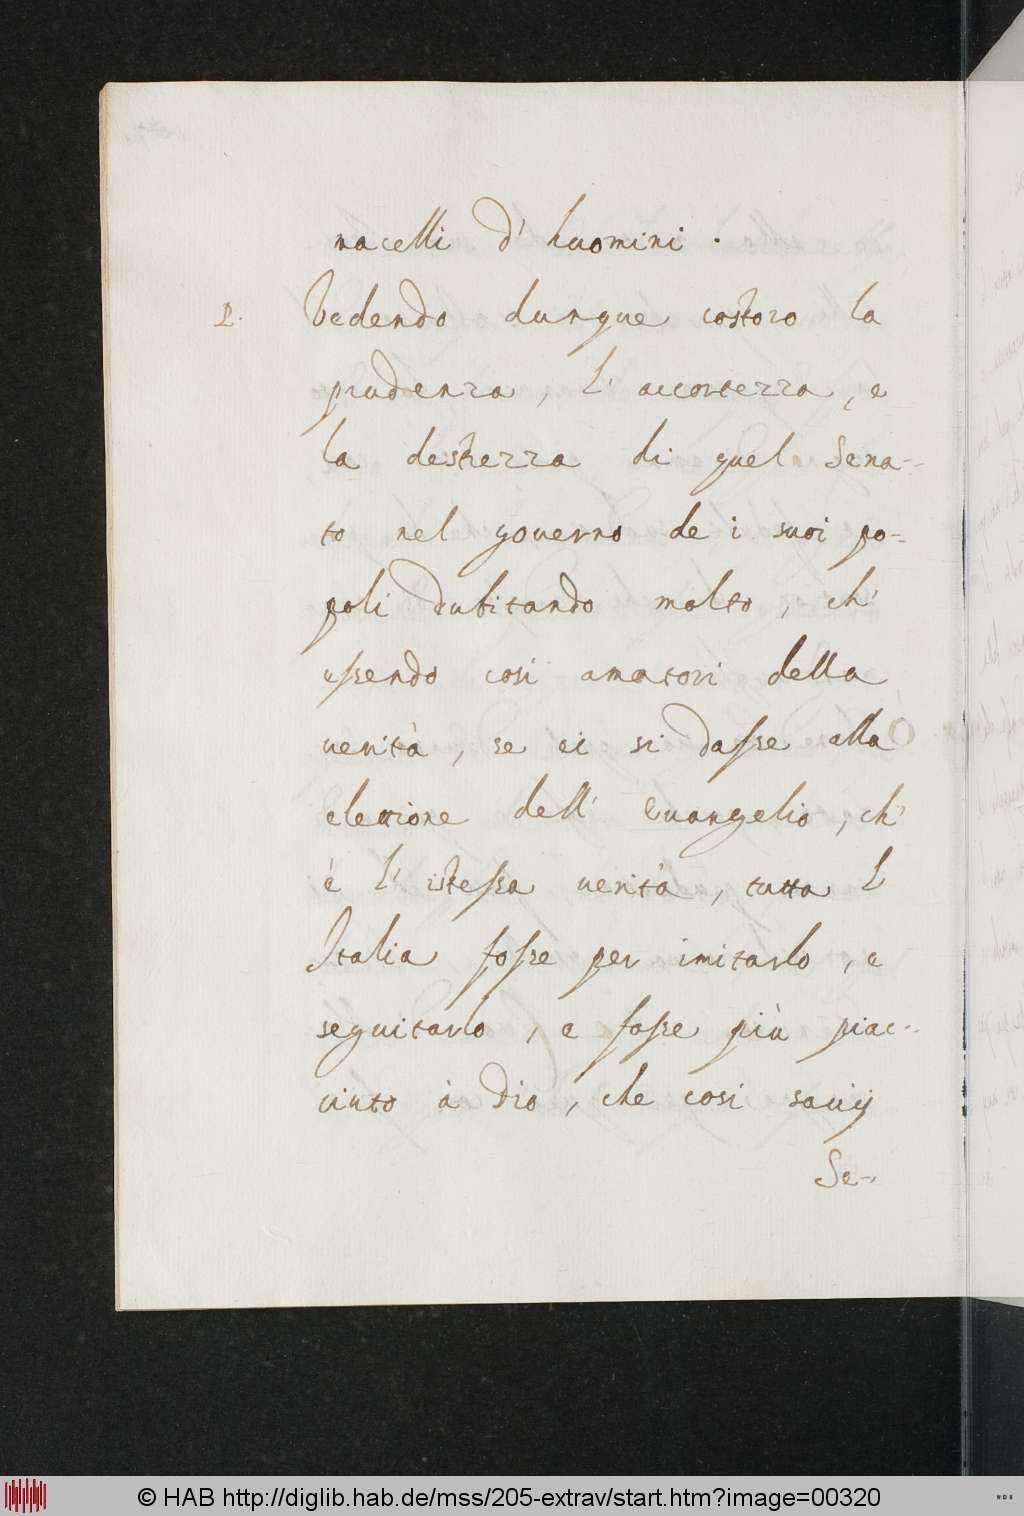 nacelli d' huomini.
2. Vedendo dunque costoro la
prudenza, l' accortezza, e
la destrezza di quel Sena-
to nel gouerno de i suoi po-
poli dubitando molto, ch'
essendo cosi amatori della
uerità, se ei si dasse alla
elettione dell' Euangelio, ch'
è l' istessa uerità, tutta l
Italia fosse per imitarlo, e
seguitarlo, e fosse più piac-
ciuto à Dio, che cosi sauij
Se-
© HAB http://diglib.hab.de/mss/205-extrav/start.htm?image=00320